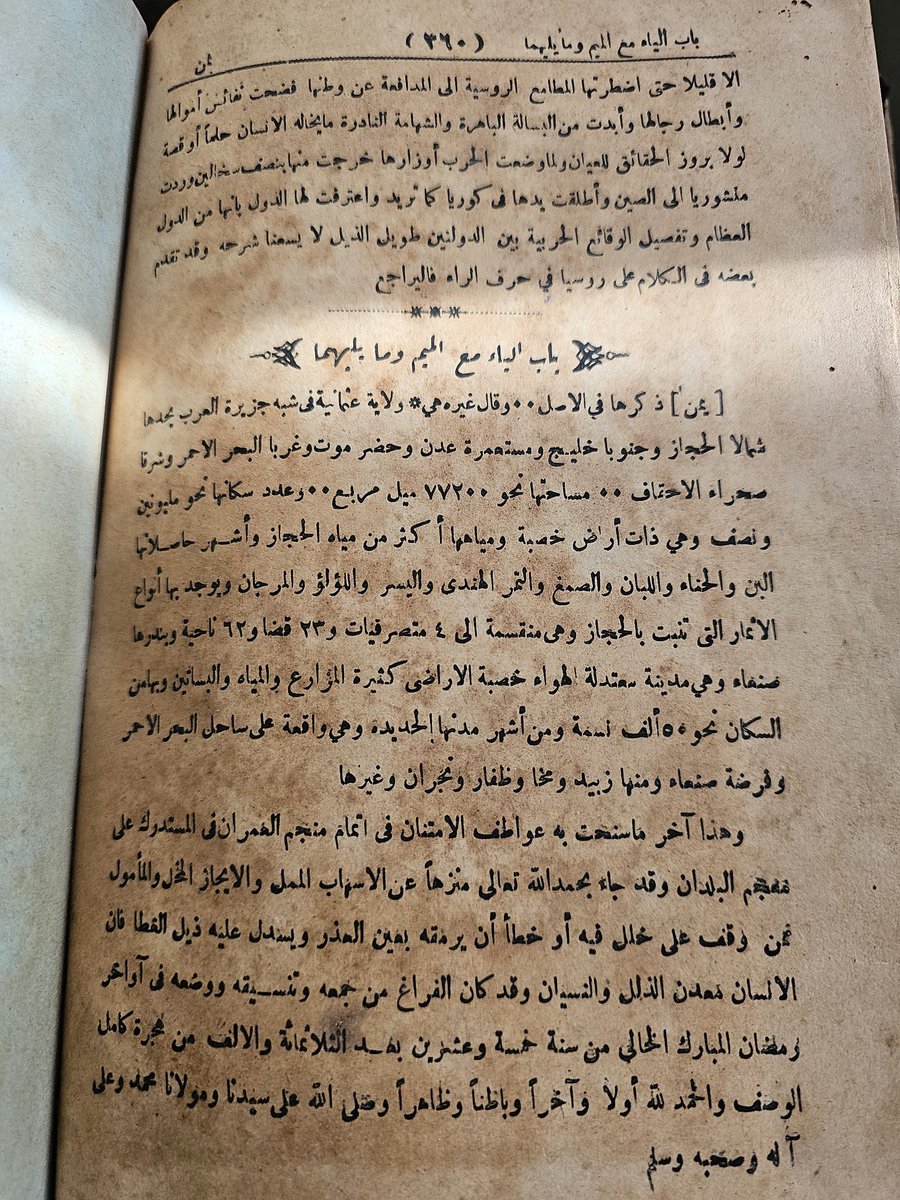 باب الياء مع الميم وما يليهما (٣٦٠) يمن
الا قليلا حتى اضطرتها المطامع الروسية الى المدافعة عن وطنها فضحت نفائس أموالها
وأبطال رجالها وأبدت من البسالة الباهرة والشهامة النادرة مايخاله الانسان حلماً أو قصة
لولا بروز الحقائق للعيان ولما وضعت الحرب أوزارها خرجت منها بنصف سخالين وردت
منشوريا الى الصين وأطلقت يدها فى كوريا كما تريد واعترفت لها الدول بانها من الدول
العظام وتفصيل الوقائع الحربية بين الدولتين طويل الذيل لا يسعنا شرحه وقد تقدم
بعضه فى الكلام على روسيا في حرف الراء فاليراجع
باب الياء مع الميم وما يليهما
[يمن] ذكرها في الاصل ٠٠ وقال غيره هي * ولاية عثمانية فى شبه جزيرة العرب يحدها
شمالا الحجاز وجنوبا خليج ومستعمرة عدن وحضر موت وغربا البحر الاحمر وشرقا
صحراء الاحقاف ٠٠ مساحتها نحو ٧٧٢٠٠ ميل مربع ٠٠ وعدد سكانها نحو مليونين
ونصف وهي ذات أراض خصبة ومياهها أكثر من مياه الحجاز وأشهر حاصلاتها
البن والحناء واللبان والصمغ والتمر الهندى واليسر واللؤلؤ والمرجان ويوجد بها أنواع
الاثمار التى تنبت بالحجاز وهى منقسمة الى ٤ متصرفيات و٢٣ قضا و٦٢ ناحية وبندرها
صنعاء وهي مدينة معتدلة الهواء خصبة الاراضى كثيرة المزارع والمياه والبساتين وبهامن
السكان نحو ٥٥ ألف نسمة ومن أشهر مدنها الحديده وهي واقعة على ساحل البحر الاحمر
وفرضة صنعاء ومنها زبيد ومخا وظفار ونجران وغيرها
وهذا آخر ماسنحت به عواطف الامتنان فى اتمام منجم العمران فى المستدرك على
معجم البلدان وقد جاء بحمدالله تعالى منزهاً عن الاسهاب الممل والايجاز المخل والمأمول
ممن وقف على خلل فيه أو خطأ أن يرمقه بعين العذر ويسدل عليه ذيل الغطا فان
الانسان معدن الذلل والنسيان وقد كان الفراغ من جمعه وتنسيقه ووضعه فى آواخر
رمضان المبارك الخالي من سنة خمسة وعشرين بعد الثلاثمائة والالف من هجرة كامل
الوصف والحمد لله أولا وآخراً وباطناً وظاهراً وصلى الله على سيدنا ومولانا محمد وعلى
آله وصحبه وسلم